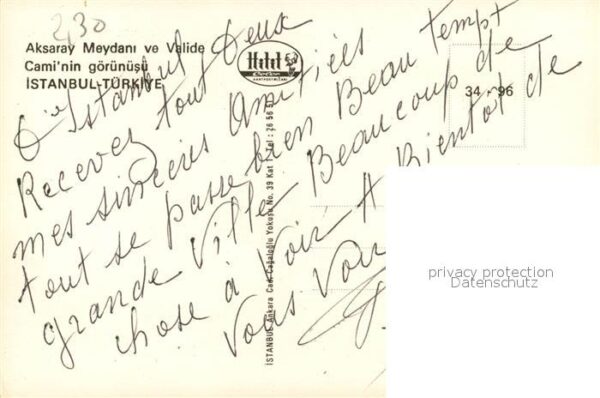 2,30
Aksaray Meydanı ve Valide
Cami'nin görünüşü
İSTANBUL-TÜRKİYE
34 - 96
İSTANBUL Ankara Cad. Cağaloğlu Yokuşu No. 39 Kat 1 - Tel : 26 56 5
D'Istambul
Recevez tout deux
mes sincères Amitiées
tout se passe bien Beau tempt
grande Ville Beaucoup de
chose à Voir A Bientot de
Vous Voir
privacy protection
Datenschutz